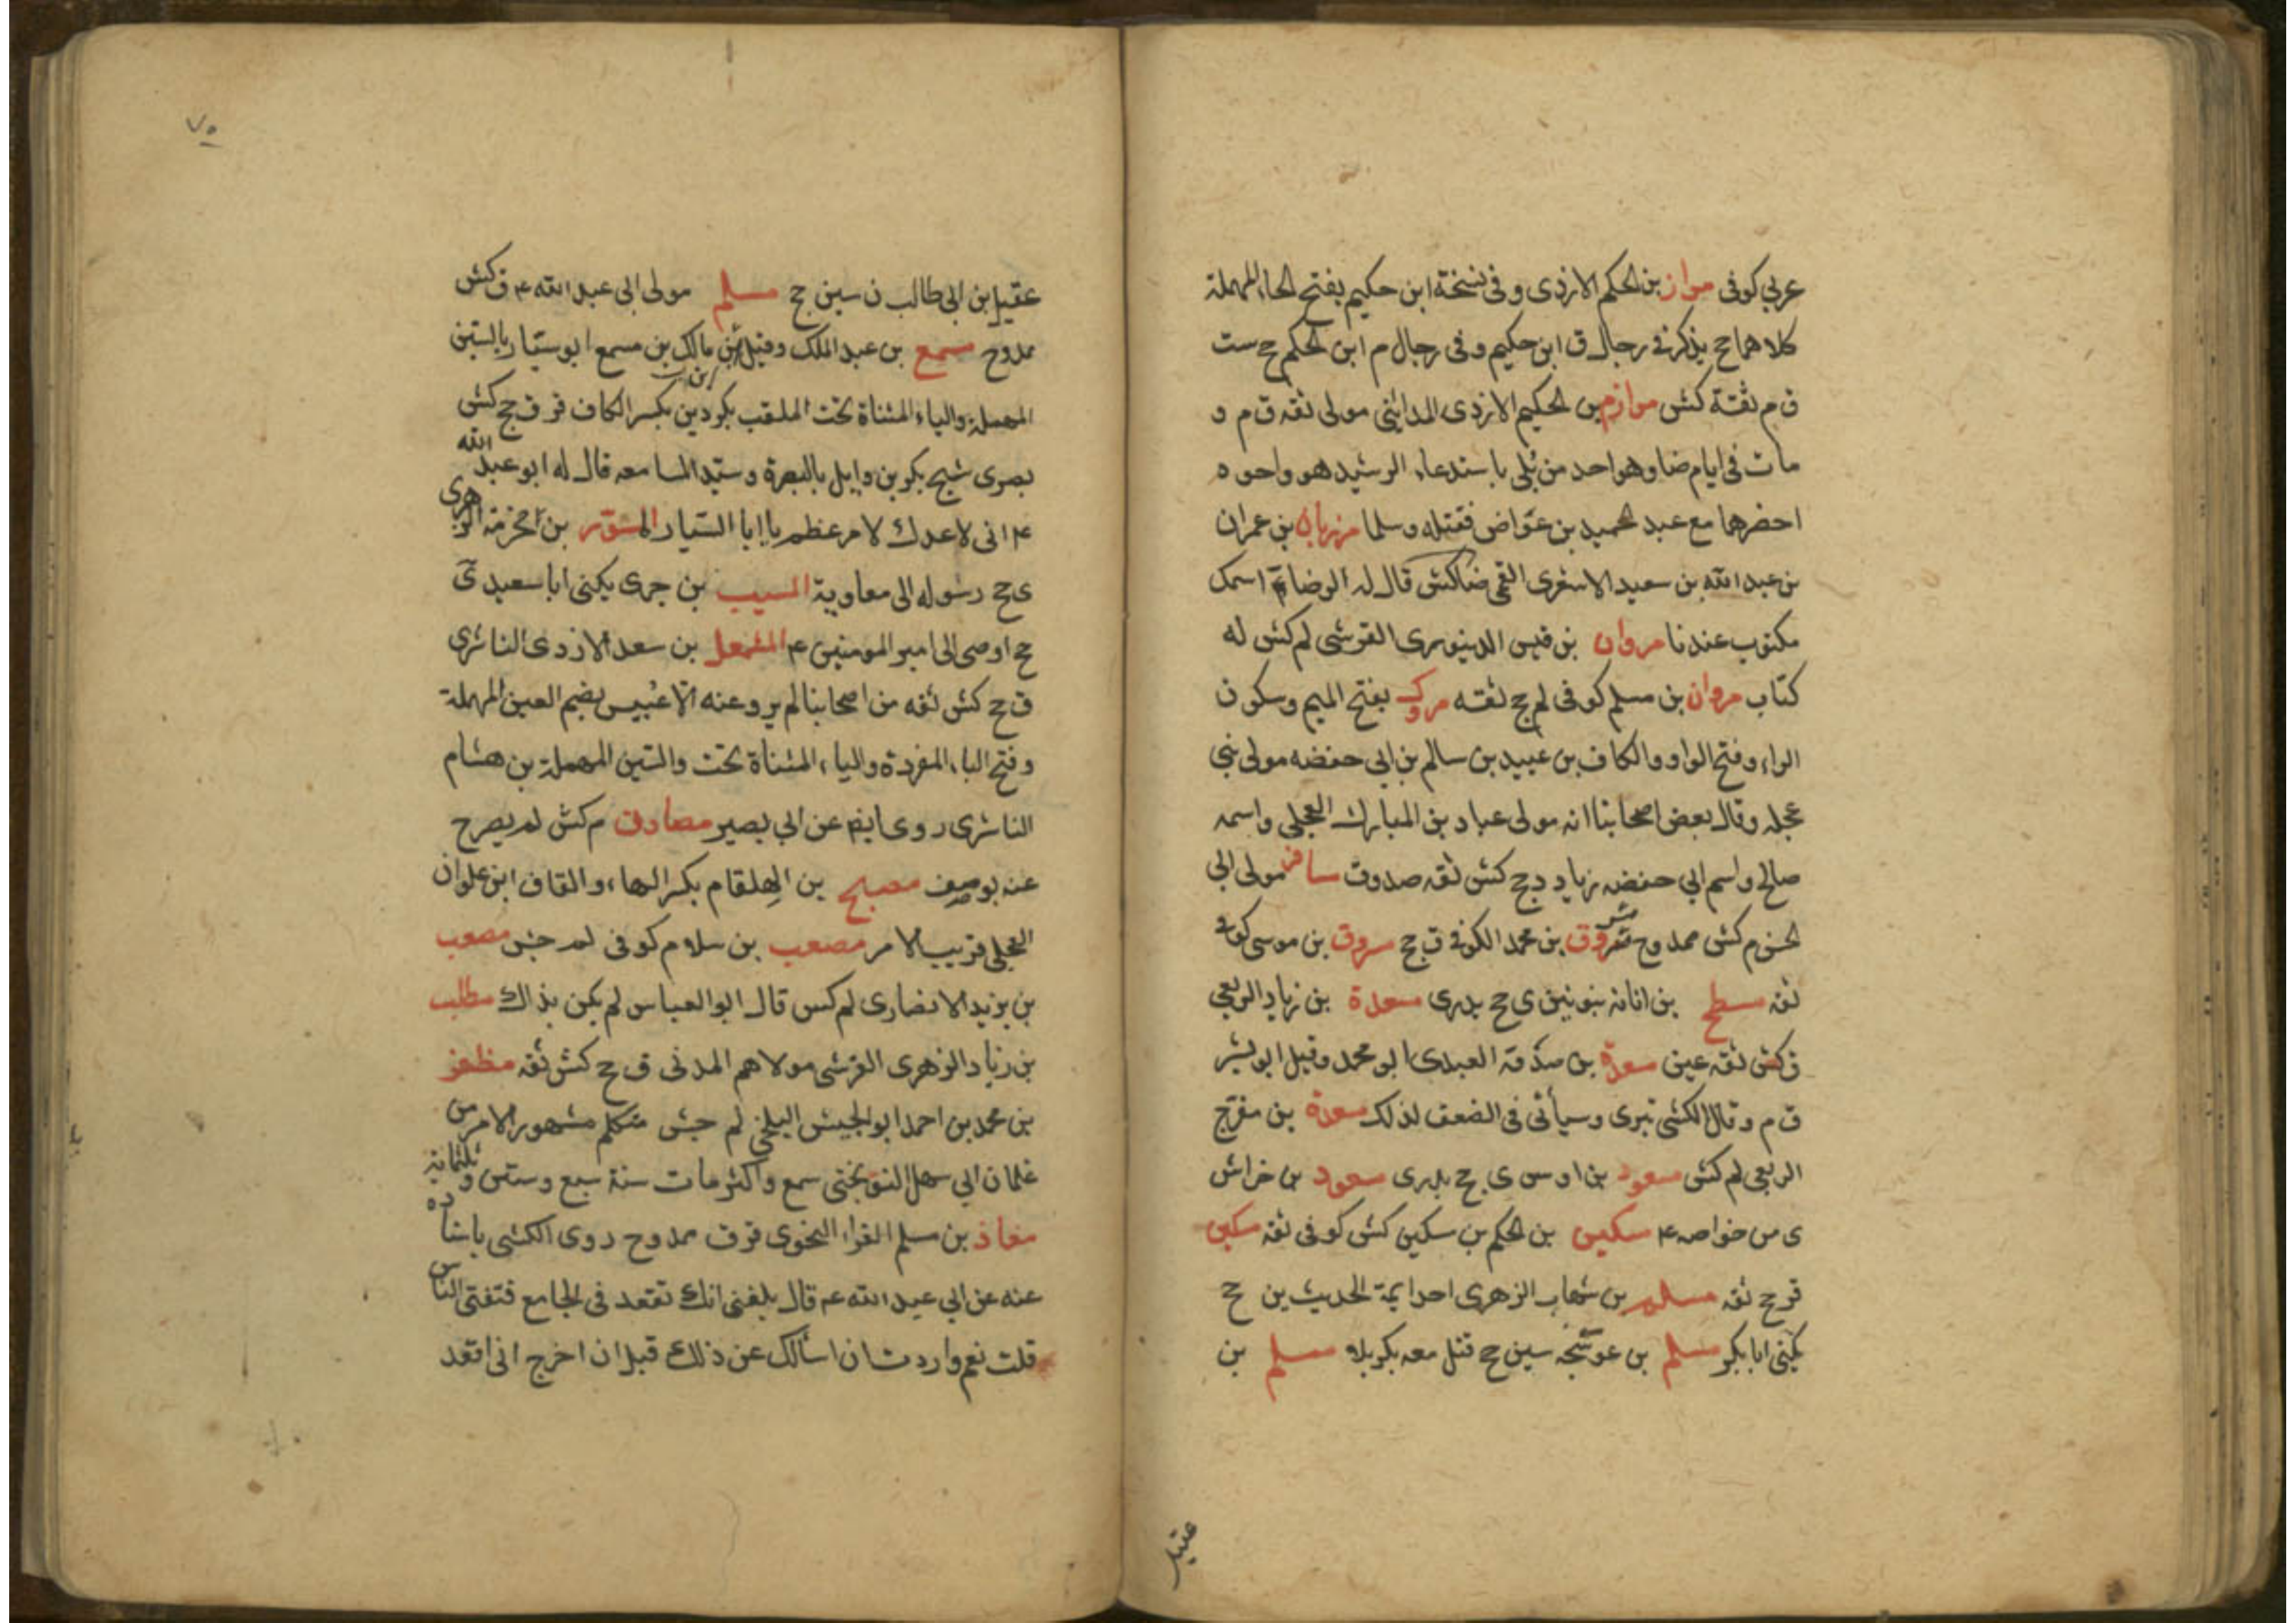 عربي كوفى مراز بن الحكم الازدى و فى نسخة ابن حكيم بفتح الحاء المهملة
كلاهما ج يذكر في رجال ق ابن حكيم و فى رجال م ابن الحكم ج ست
ق م ثقة كش مرازم بن الحكيم الازدى المدايني مولى ثقه ق م و
مات فى ايام ضا وهو احد من بلى باستدعاء الرشيد هو واخوه
احضرهما مع عبد الحميد بن عواض فقتله وسلما مرزبان بن عمران
بن عبد الله بن سعيد الاشعرى القمى ضا كش قال له الرضا ع اسمك
مكتوب عندنا مروان بن قيس الدينورى القرشى لم كش له
كتاب مروان بن مسلم كوفى لم ج ثقته مروك بفتح الميم وسكون
الراء وفتح الواو والكاف بن عبيد بن سالم بن ابى حفضه مولى بنى
عجله وقال بعض اصحابنا انه مولى عباد بن المبارك العجلى واسمه
صالح واسم ابي حفضه زياد دج كش ثقه صدوق مسافر مولى ابى
الحسن م كش ممدوح مسروق بن محمد الكوفى ق ج مسروق بن موسى كوفى
ثقه مسطح بن اثاثه ى ج بدرى مسعدة بن زياد الربعى
ق كش ثقه عين مسعدة بن صدقة العبدى ابو محمد وقيل ابو بشر
ق م وقال الكشى تبرى وسيأتى فى الضعف لذلك مسعدة بن مفرج
الربعى لم كش مسعود بن اوس ى ج بدرى مسعود بن خراش
ى من خواصه ع مسكين بن الحكم بن مسكين كش كوفى ثقه مسكين
قر ج ثقه مسلم بن شهاب الزهرى احد ايمة الحديث ين ج
يكنى ابا بكر مسلم بن عوسجه سين ج قتل معه بكربلاء مسلم بن
عقيل
٧٥
عقيل بن ابى طالب ن سين ج مسلم مولى ابى عبد الله ع ق كش
ممدوح مسمع بن عبد الملك وقيل ابن مالك بن مسمع ابو سيار بالسين
المهملة والياء المثناة تحت الملقب بكردين بكسر الكاف قر ق جج كش
بصرى شيخ بكر بن وايل بالبصرة وسيد المسامعه قال له ابو عبد الله
ع انى لاعدك لامر عظيم يا ابا السيار المسور بن مخزمة الزهرى
ى ج رسوله الى معاوية المسيب بن جرى يكنى ابا سعيد ى
ج اوصى الى امير المومنين ع المشمعل بن سعد الازدى الناشرى
ق ج كش ثقه من اصحابنا لم يرو عنه الا عبيس بضم العين المهملة
وفتح الباء المفردة والياء المثناة تحت والسين المهملة بن هشام
الناشرى روى ايضا عن ابي بصير مصادق م كش لم يصرح
عنه بوصف مصبح بن الهلقام بكسر الهاء والقاف ابن علوان
العجلى قريب الامر مصعب بن سلام كوفى لم جش مصعب
بن يزيد الانصارى لم كس قال ابو العباس لم يكن بذاك مطلب
بن زياد الزهرى القرشى مولاهم المدنى ق ج كش ثقه مظفر
بن محمد بن احمد ابو الجيش البلخى لم جش متكلم مشهور الامر من
غلمان ابي سهل النوبختى سمع واكثر مات سنة سبع وستين وثلثمائة
معاذ بن مسلم الفراء النحوى قر ق ممدوح روى الكشى باسناده
عنه عن ابي عبد الله ع قال بلغنى انك تقعد فى الجامع فتفتى الناس
قلت نعم واردت ان اسألك عن ذلك قبل ان اخرج انى اقعد